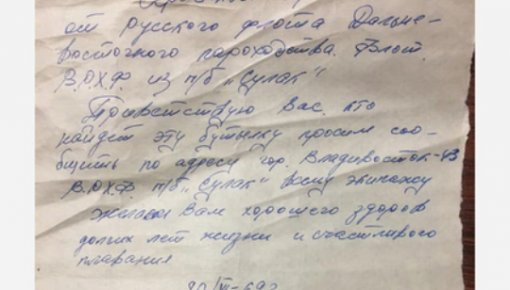 от русского флота Дальне-
восточного пароходства. Влот.
В.Р.Х.Ф. из п/б „Сулак"
Приветствую Вас. кто
найдет эту бутылку просим соо-
бщить по адресу гор. Владивосток-43
В.Р.Х.Ф. п/б „Сулак" всему экипажу
желаем Вам хорошего здоров
долгих лет жизни и счастливого
плавания